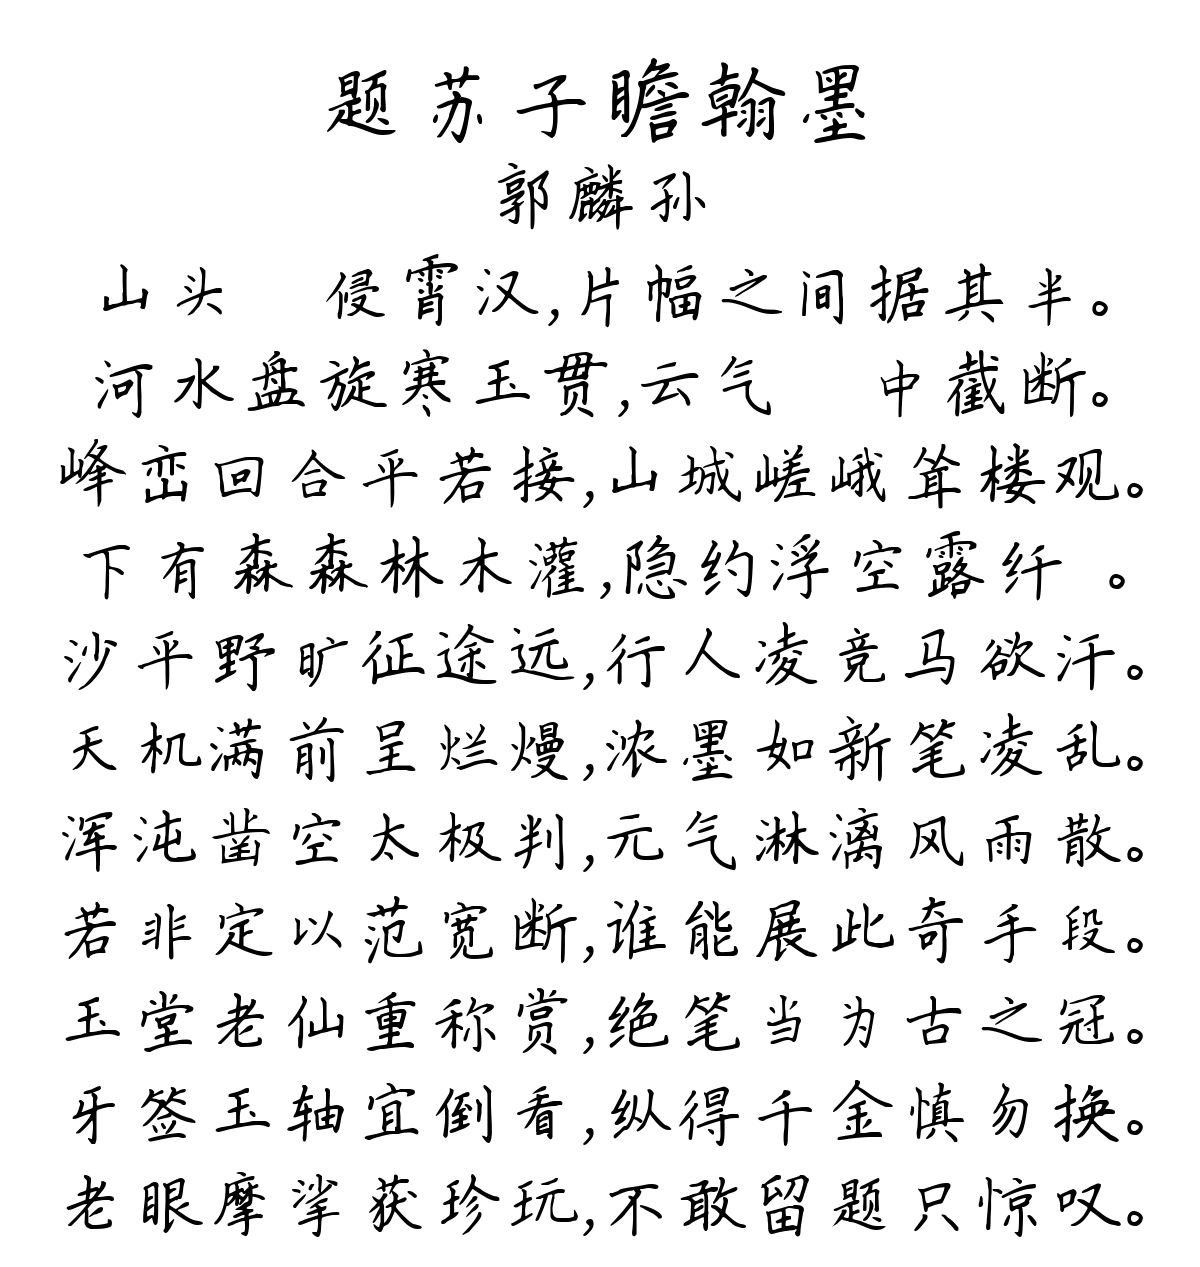 题苏子瞻翰墨
郭麟孙
山头 侵霄汉,片幅之间据其半。
河水盘旋寒玉贯,云气 中截断。
峰峦回合平若接,山城嵯峨耸楼观。
下有森森林木灌,隐约浮空露纤 。
沙平野旷征途远,行人凌竞马欲汗。
天机满前呈烂熳,浓墨如新笔凌乱。
浑沌凿空太极判,元气淋漓风雨散。
若非定以范宽断,谁能展此奇手段。
玉堂老仙重称赏,绝笔当为古之冠。
牙签玉轴宜倒看,纵得千金慎勿换。
老眼摩挲获珍玩,不敢留题只惊叹。